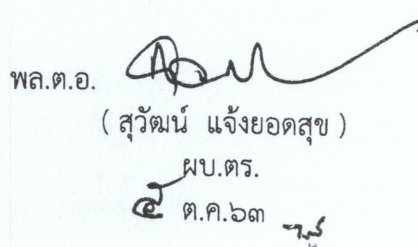 พล.ต.อ.
( สุวัฒน์ แจ้งยอดสุข )
ผบ.ตร.
๕ ต.ค.๖๓